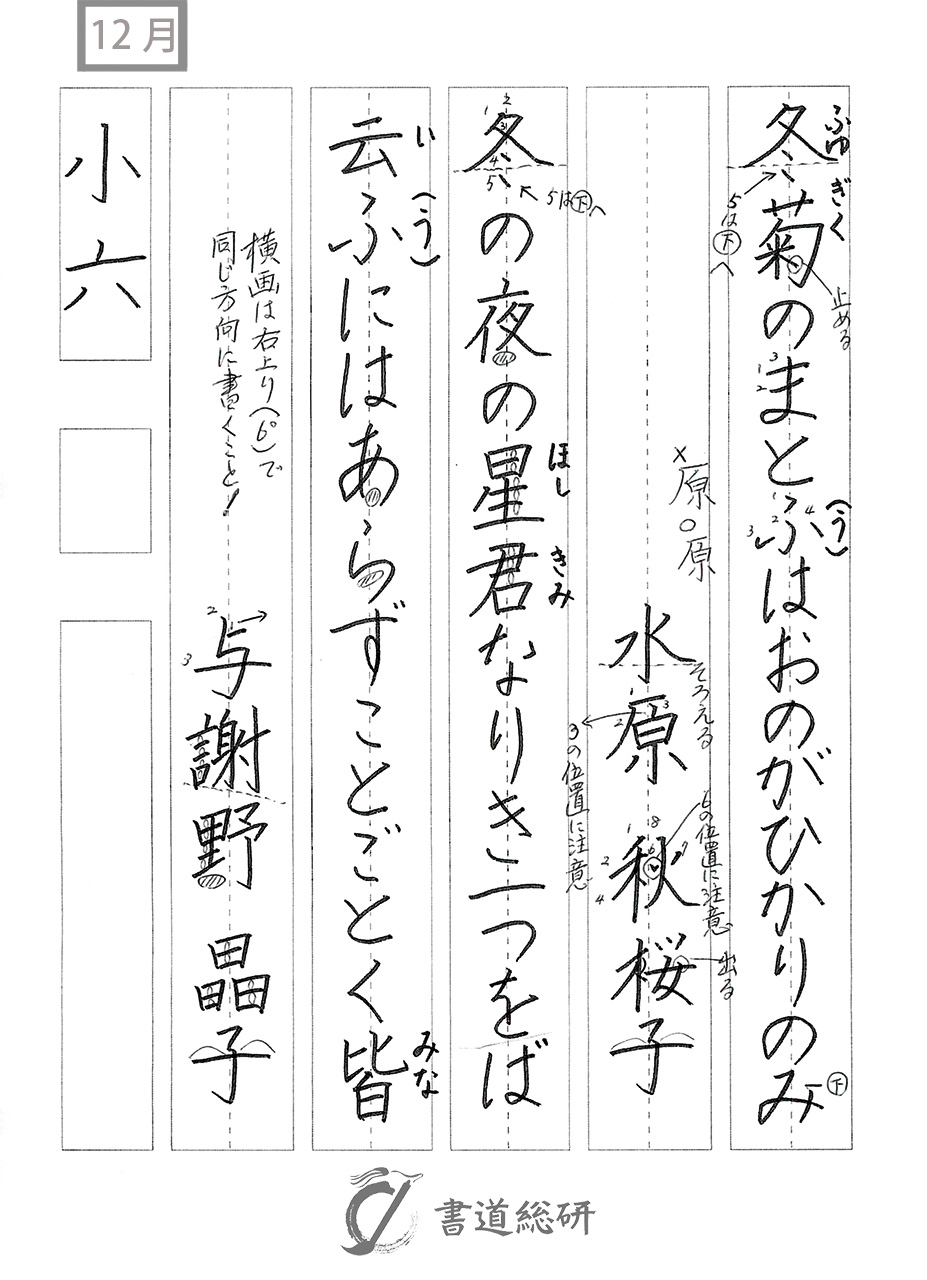 12月
冬菊のまとふはおのがひかりのみ
ふゆ
ぎく
(う)
5は下へ
止める
下
×原
○原
水原 秋桜子
そろえる
3の位置に注意
5の位置に注意
出る
冬の夜の星君なりき一つをば
5は下へ
ほし
きみ
云ふにはあらずことごとく皆
い
(う)
みな
横画は右上り(6°)で
同じ方向に書くこと!
与謝野 晶子
小六
書道総研